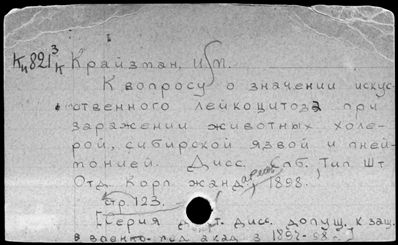 Кн821 3/к Крайзман, И.М.
К вопросу о значении искус-
ственного лейкоцитоза при
заражении животных холе-
рой, сибирской язвой и пней-
монией. Дисс. Спб., Тип. Шт.
Отд. Корп. жанд. 1898.
стр. 123.
[Серия дисс. допущ. к защ.
в военно-мед. акад. в 1897-98